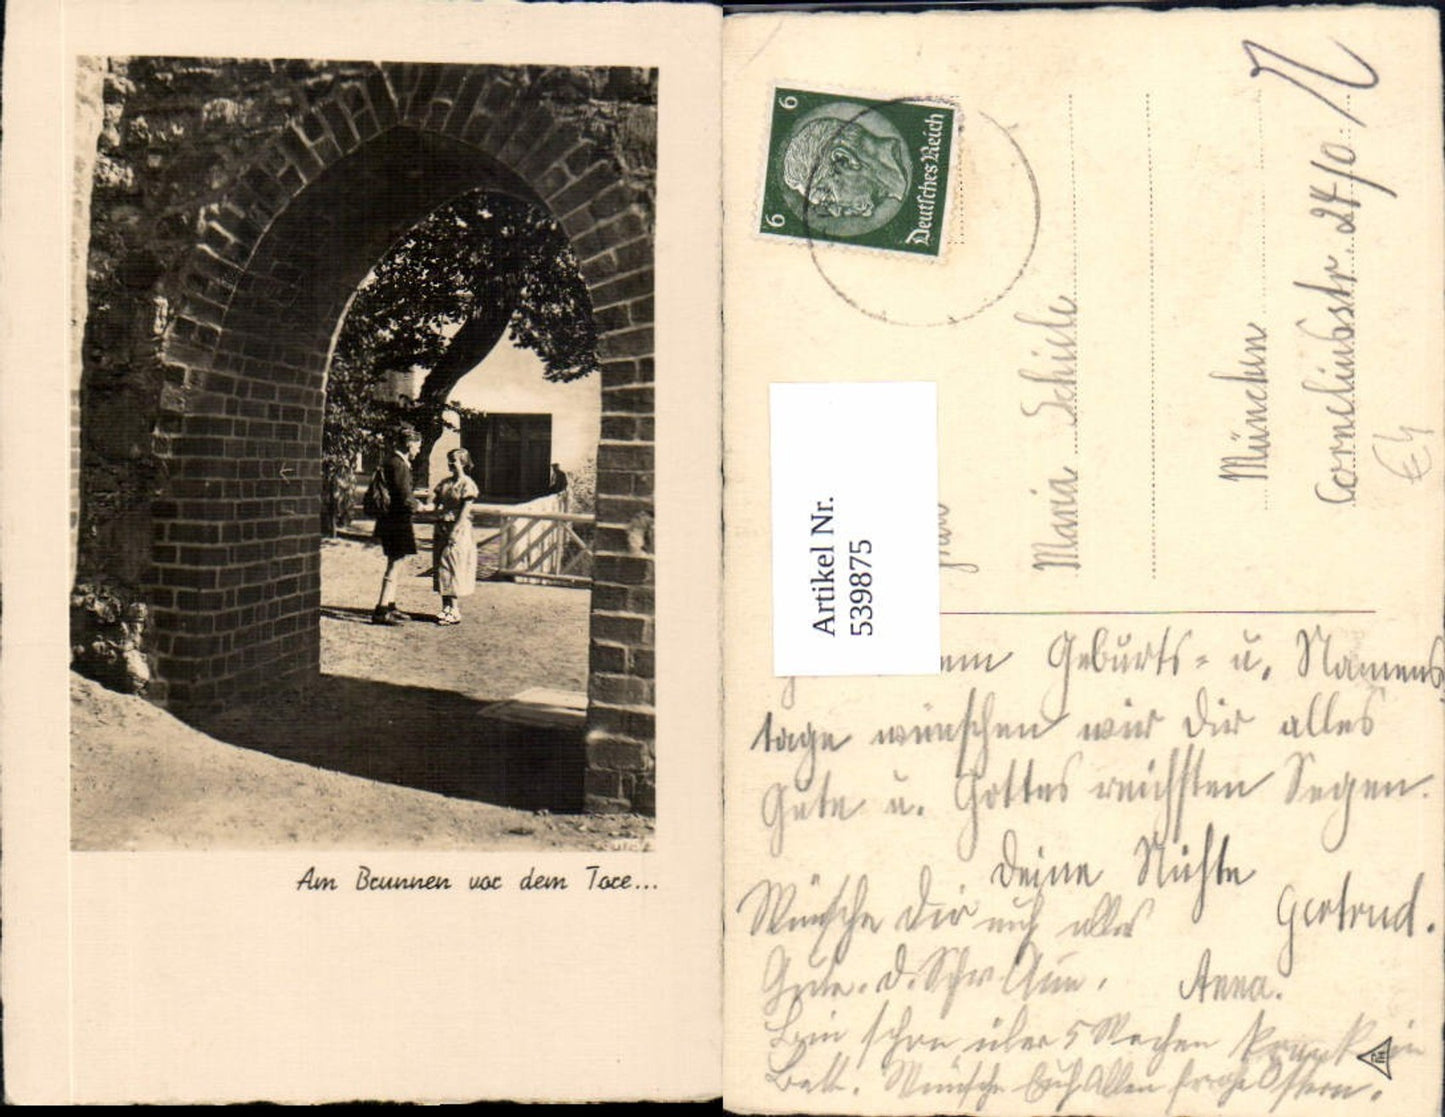 Am Brunnen vor dem Tore...
6
6
Deutsches Reich
Artikel Nr.
539875
Maria Schiele
München
Corneliusstr. 24/0
Geburts- u. Namens
tage wünschen wir Dir alles
Gute u. Gottes reichsten Segen.
Deine Nichte
Gertrud.
Wünsche Dir auch alles
Gute. d. Schw Anna.
Bin schon über 5 Wochen krank im
Bett. Wünsche Euch Allen frohe Ostern.